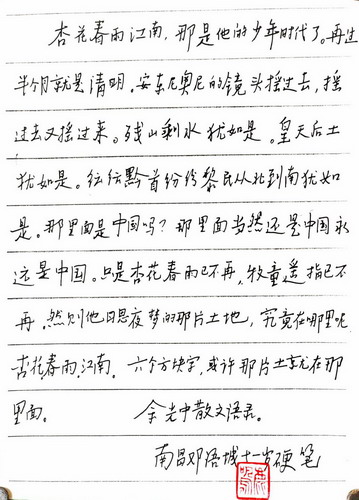 杏花春雨江南，那是他的少年时代了。再过
半个月就是清明。安东尼奥尼的镜头摇过去，摇
过去又摇过来。残山剩水犹如是。皇天后土
犹如是。纭纭黔首纷纷黎民从北到南犹如
是。那里面是中国吗？那里面当然还是中国永
远是中国。只是杏花春雨已不再，牧童遥指已不
再，然则他日思夜梦的那片土地，究竟在哪里呢
杏花春雨江南。六个方块字，或许那片土就在那
里面。 余光中散文语录。
南昌邓语城十岁硬笔